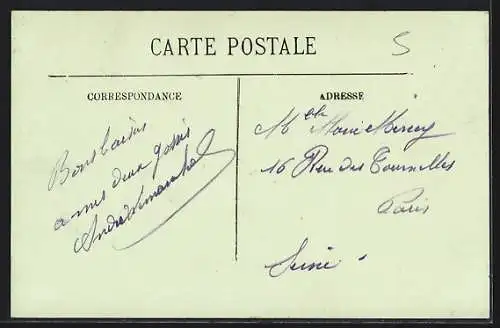 CARTE POSTALE
S
CORRESPONDANCE
ADRESSE
Bons baisers
a mes deux gosses
Mlle Marie
16 Rue des Tournelles
Paris
Seine